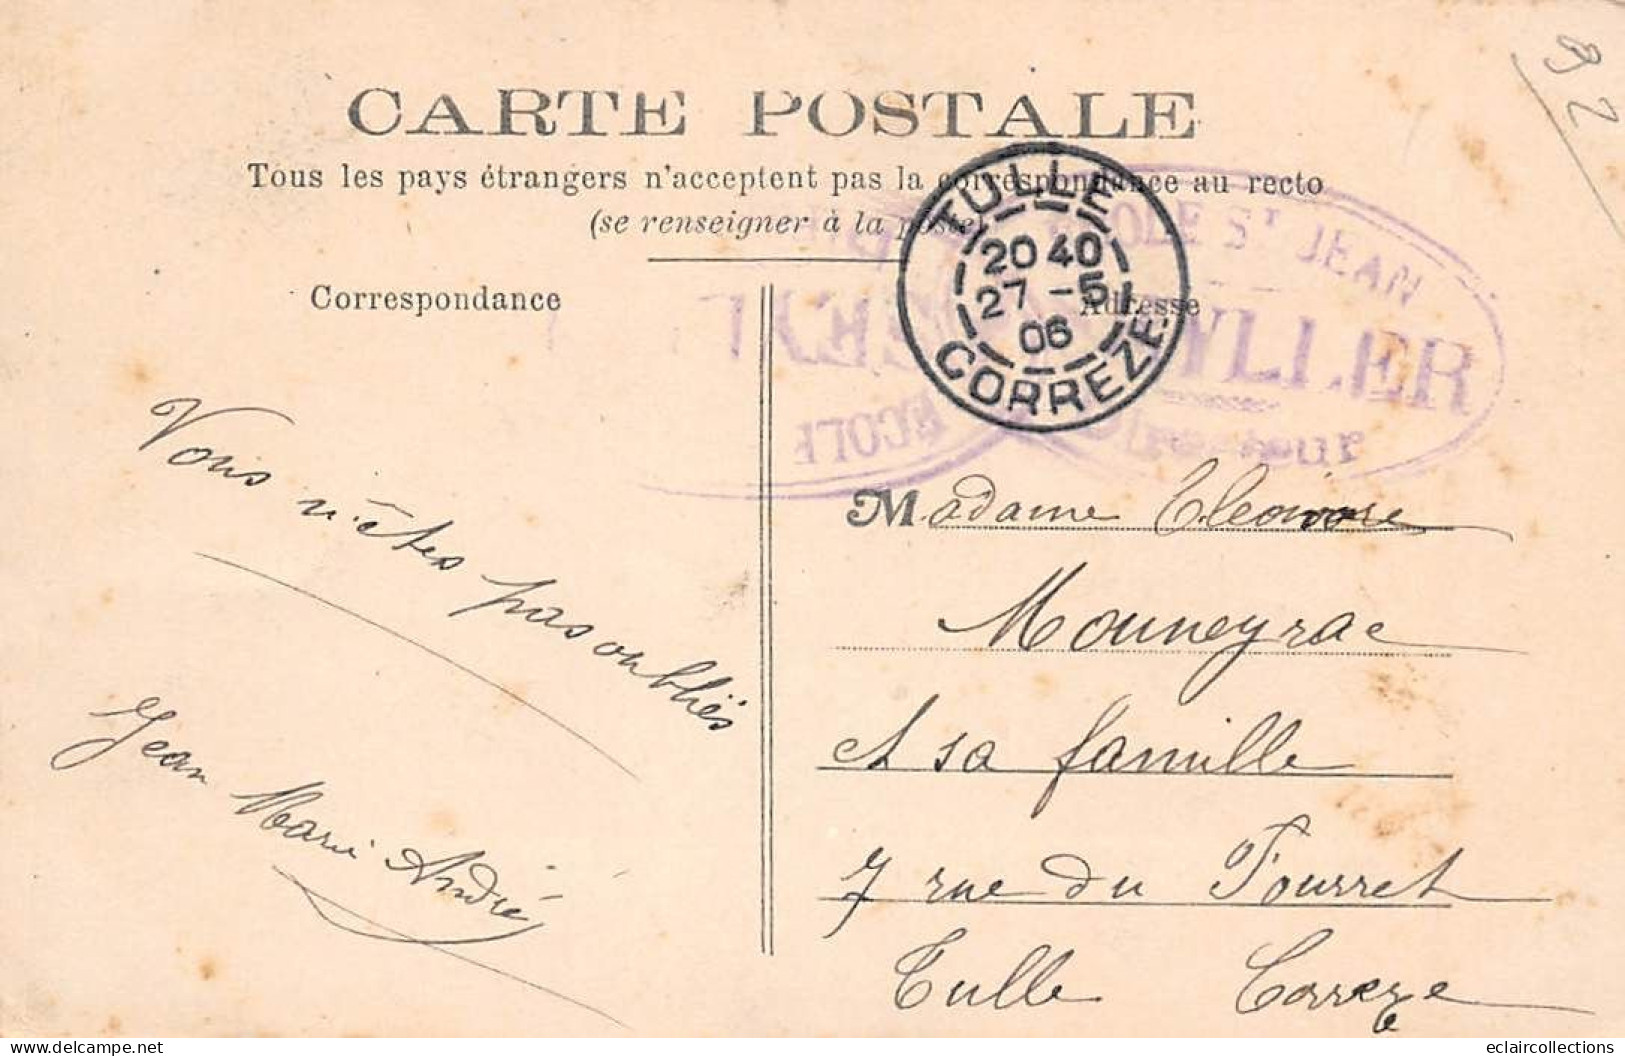 92
CARTE POSTALE
Tous les pays étrangers n'acceptent pas la correspondance au recto
(se renseigner à la poste)
Correspondance
Adresse
TULLE
20 40
27 - 5
06
CORREZE
ECOLE ST JEAN
YLLER
Directeur
ECOLE
Vous n'êtes pas oubliés
Jean Marie André
Madame
Mouneyrac
et sa famille
7 rue du Fourret
Tulle Correze
delcampe.net
eclaircollections